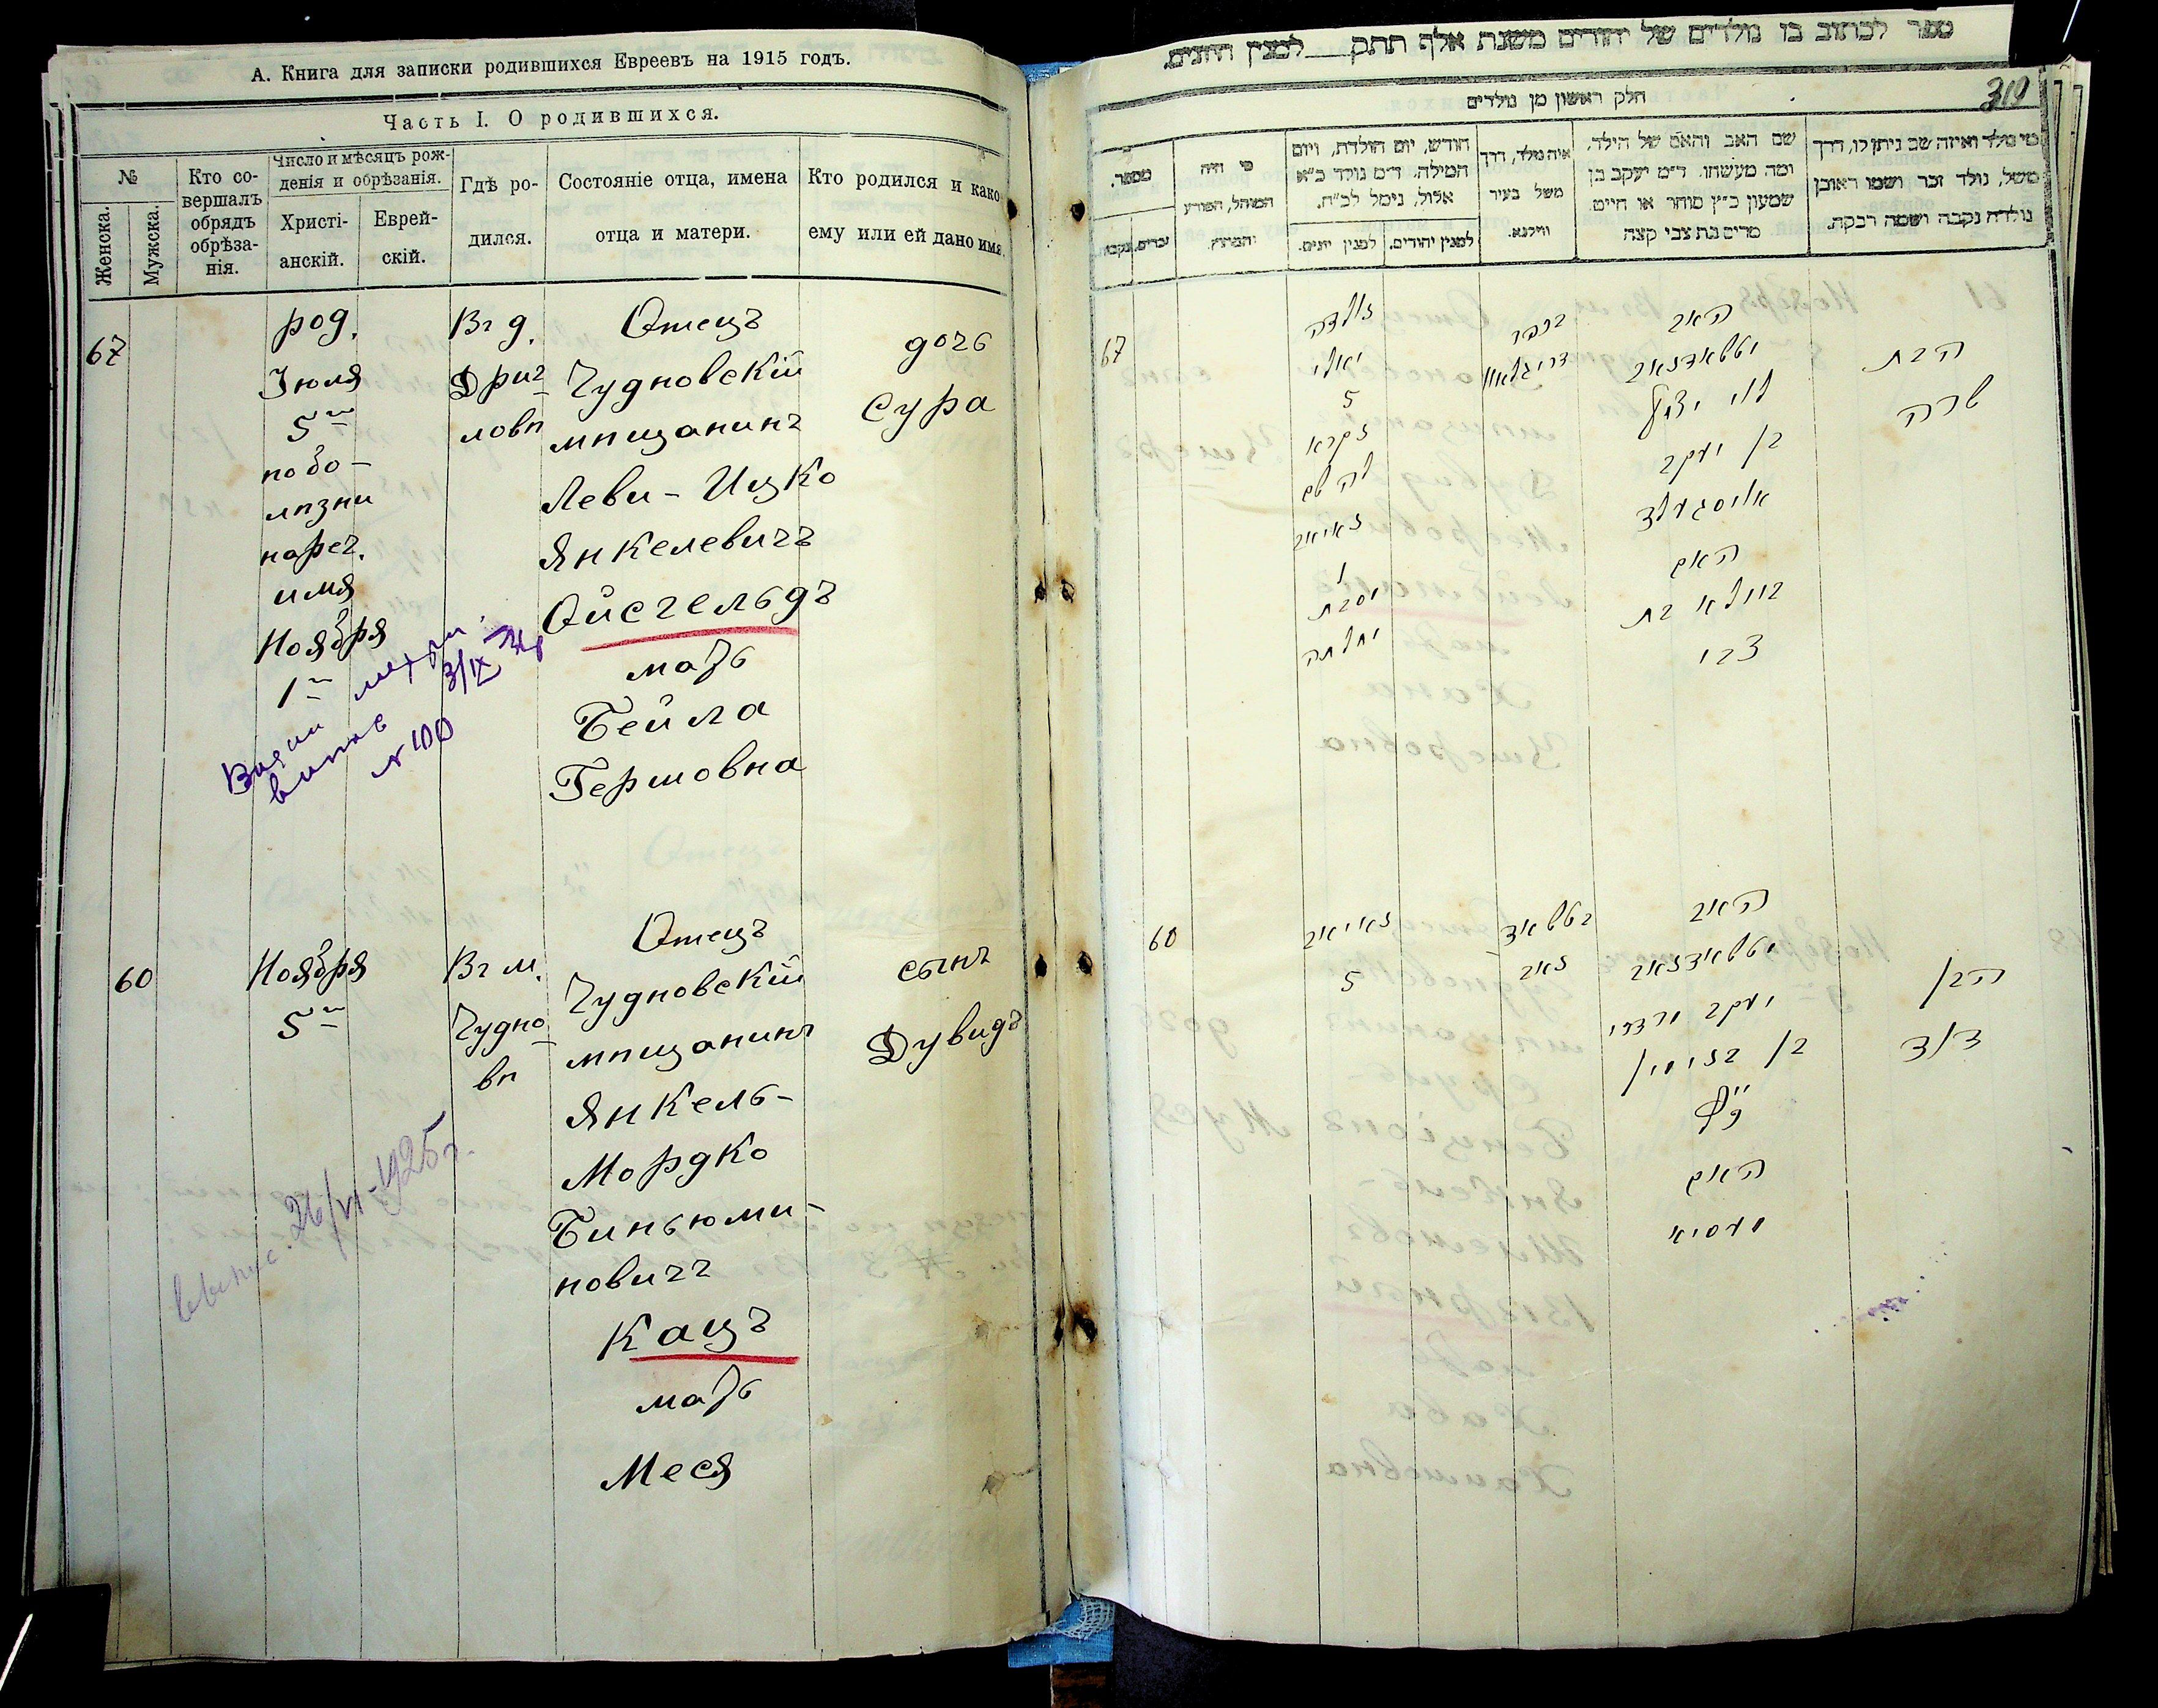 А. Книга для записки родившихся Евреевъ на 1915 годъ.
Часть I. О родившихся.
№
Женска.
Мужска.
Кто со-
вершалъ
обрядъ
обрѣза-
нія.
Число и мѣсяцъ рож-
денія и обрѣзанія.
Христі-
анскій.
Еврей-
скій.
Гдѣ ро-
дился.
Состояніе отца, имена
отца и матери.
Кто родился и како
ему или ей дано имя.
67
род.
Іюля
5го
по бо-
лѣзни
нареч.
имя
Ноября
1го
Въ д.
Дриг-
ловѣ
Отецъ
Чудновскій
мѣщанинъ
Леви-Ицко
Янкелевичъ
Ойсгельдъ
мать
Бейла
Гершовна
дочь
Сура
3/IX
№ 100
60
Ноября
5го
Въ м.
Чудно-
вѣ
Отецъ
Чудновскій
мѣщанинъ
Янкель-
Мордко
Биньюми-
новичъ
Кацъ
мать
Меся
сынъ
Дувидъ
26/VI-1925 г.
ספר לכתוב בו נולדים של יהודים משנת אלף תתק למנין היונים.
310
חלק ראשון מן נולדים
מספר.
נקבה
זכרים.
מי היה
המוהל, הפורע
והמוצץ
חודש, יום הולדת, ויום
המילה. ד״מ נולד כ״א
אלול, נימל לכ״ח.
למנין יונים.
למנין יהודים.
איה נולד, דרך
משל בעיר
ווילנא.
שם האב והאם של הילד.
ומה מעשהו. ד״מ יעקב בן
שמעון כ״ץ סוחר או חייט.
מרים בת צבי קצה
מי נולד ואיזה שם ניתן לו, דרך
משל, נולד זכר ושמו ראובן
נולדה נקבה ושמה רבקה.
67
נולדה
יולי
5
נקרא
לה שם
1
בכפר
האב
לוי יצחק
בן יעקב
האם
ביילא בת
צבי
הבת
שרה
60
5
האב
יעקב מרדכי
בן בנימין
כ״ץ
האם
מעסיא
הבן
דוד